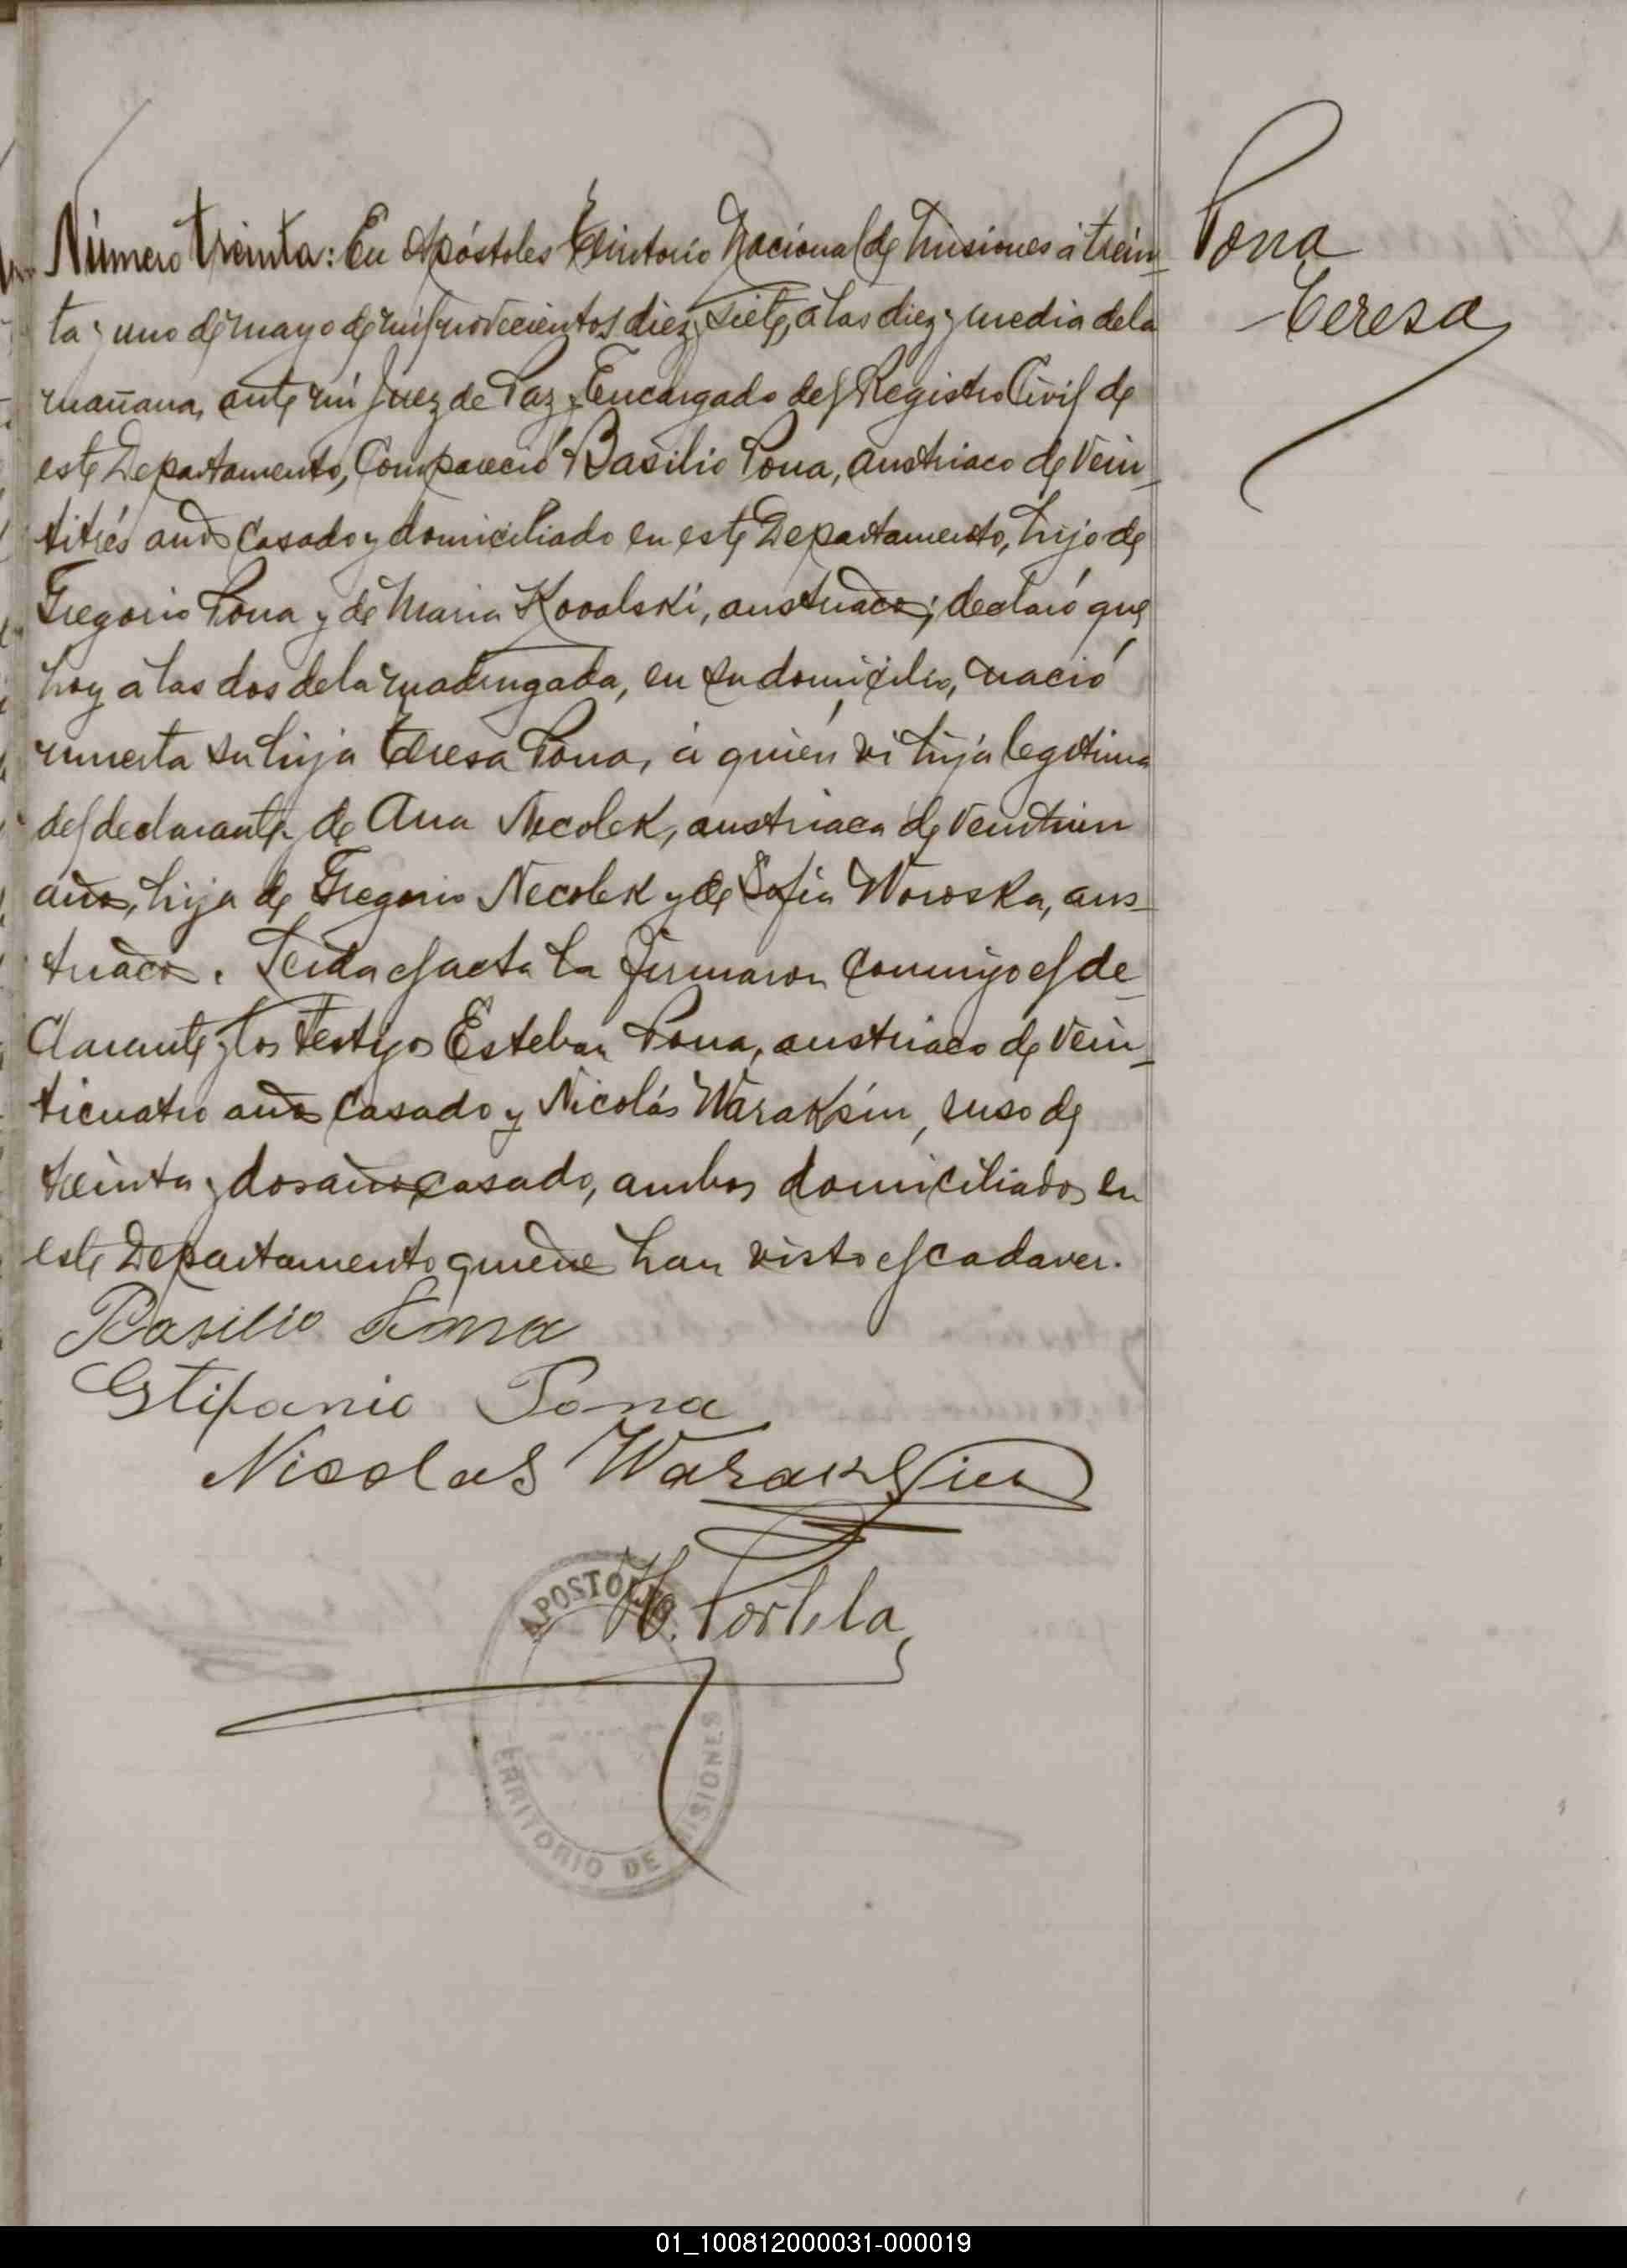 Número treinta: En Apóstoles Territorio Nacional de Misiones á trein-
ta y uno de mayo de mil novecientos diez y siete, á las diez y media de la
mañana, ante mí Juez de Paz y Encargado del Registro Civil de
este Departamento, Compareció Basilio Pona, austriaco de Vein-
titrés años casado y domiciliado en este Departamento, hijo de
Gregorio Pona y de Maria Kovalski, austriacos; declaró que
hoy á las dos de la madrugada, en su domicilio, nació
muerta su hija Teresa Pona, á quién vi hija legitima
del declarante y de Ana Necolek, austriaca de Veintiun
años, hija de Gregorio Necolek y de Sofia Woroska, aus-
triacos. Leida el acta la firmaron conmigo el de-
clarante y los testigos Esteban Pona, austriaco de Vein-
ticuatro años casado y Nicolás Waraksin, ruso de
treinta y dos años casado, ambos domiciliados en
este Departamento quienes han visto el cadaver.
Basilio Pona
Stifanio Pona
Nicolas Waraksin
H. Portela
APOSTOLES
TERRITORIO DE MISIONES
Pona
Teresa
01_100812000031-000019